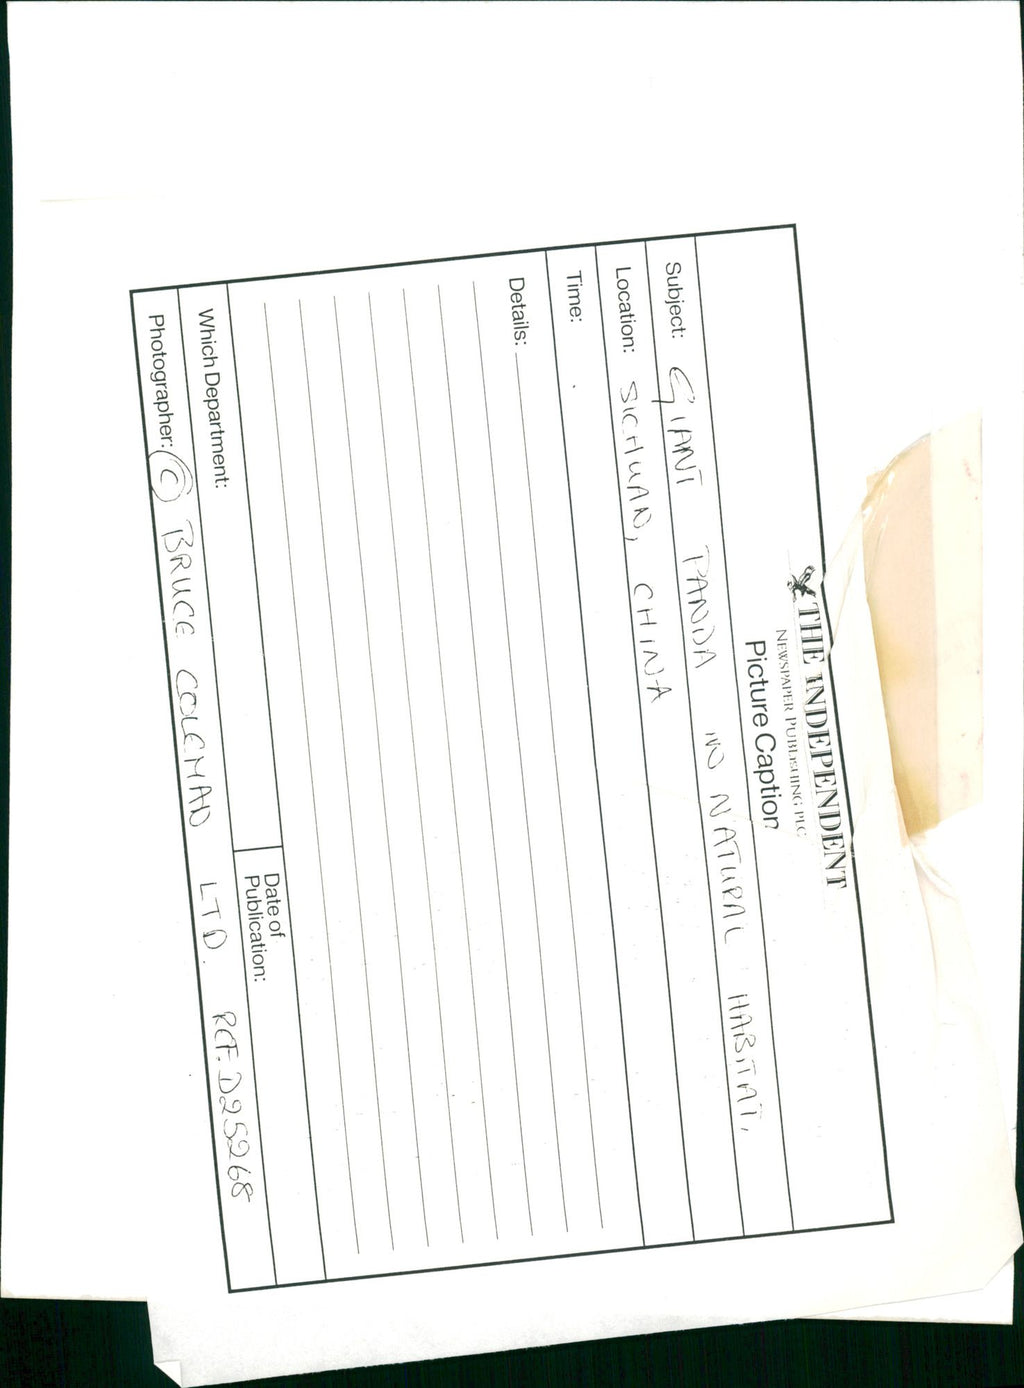 THE INDEPENDENT
NEWSPAPER PUBLISHING PLC
Picture Caption
Subject: GIANT PANDA IN NATURAL HABITAT,
Location: SICHUAN, CHINA
Time:
Details:
Which Department:
Date of
Publication:
Photographer: © BRUCE COLEMAN LTD. REF. D25268